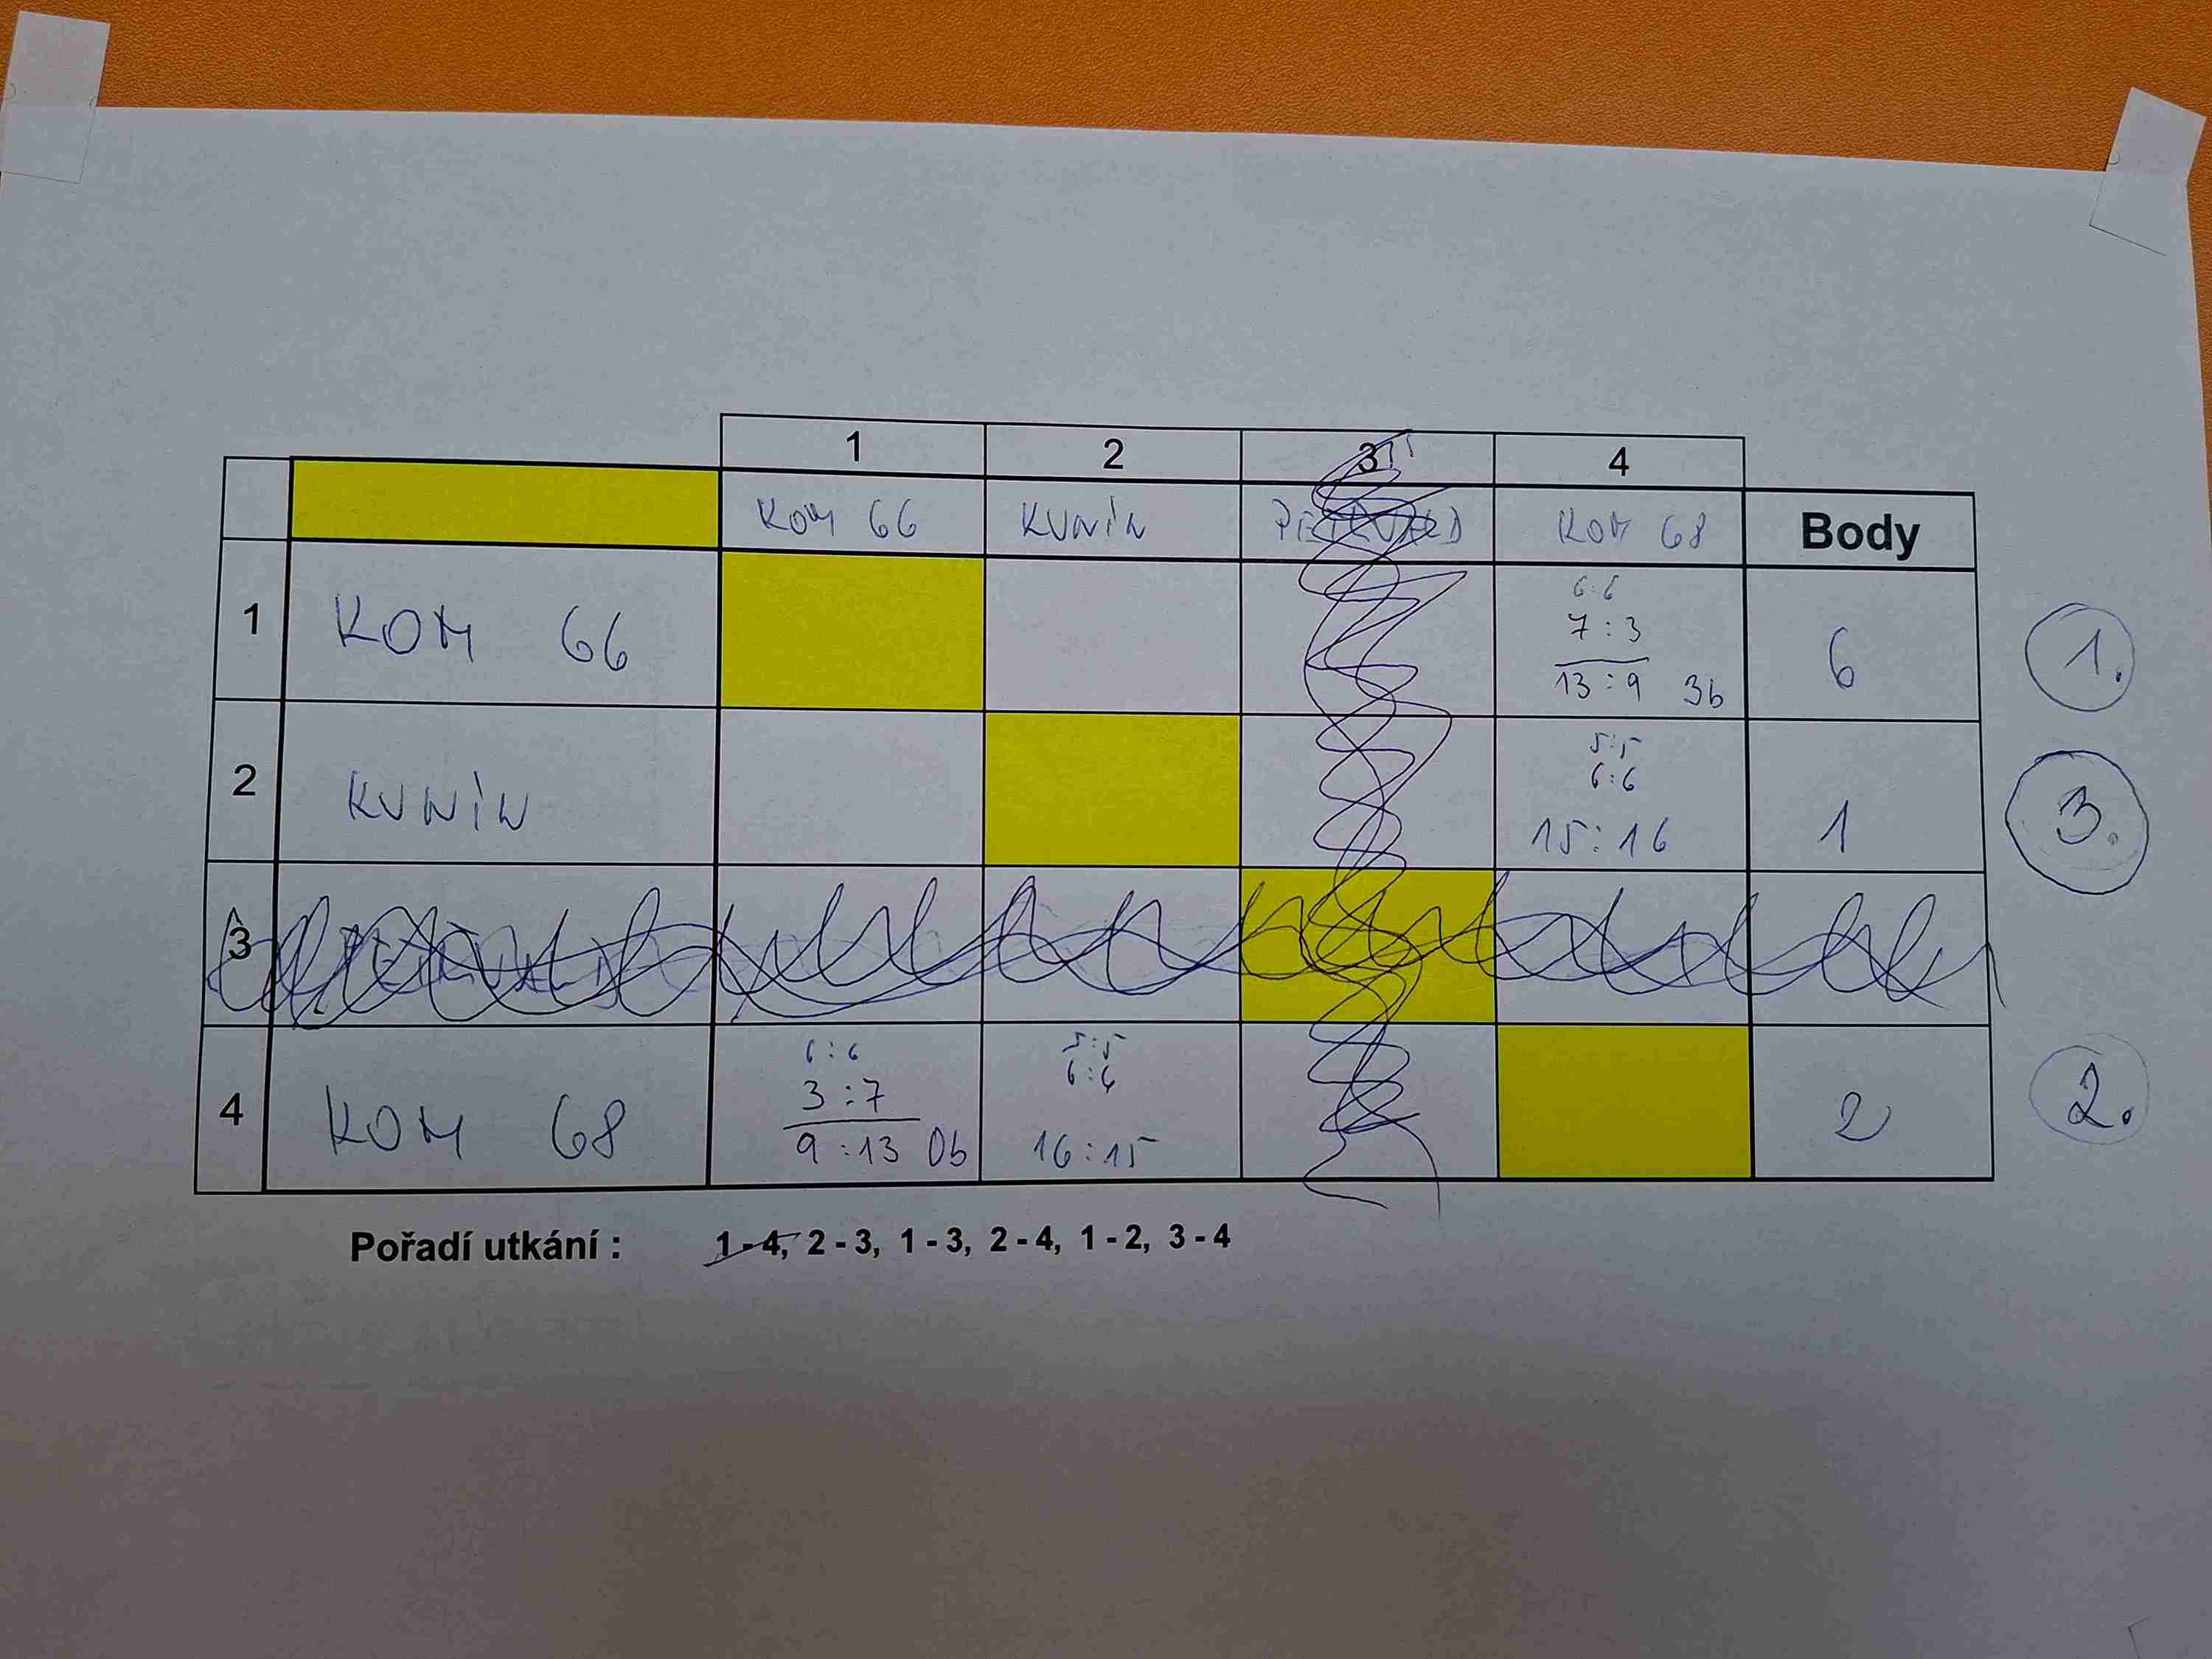 1 2 3 4
KOM 66 KUNÍN PETŘVALD KOM 68 Body
6:6
1 KOM 66 7:3 6 1.
13:9 3b
5:5
6:6
2 KUNÍN 15:16 1 3.
3
6:6 5:5
3:7 6:6
4 KOM 68 9:13 0b 16:15 2 2.
Pořadí utkání : 1 - 4, 2 - 3, 1 - 3, 2 - 4, 1 - 2, 3 - 4